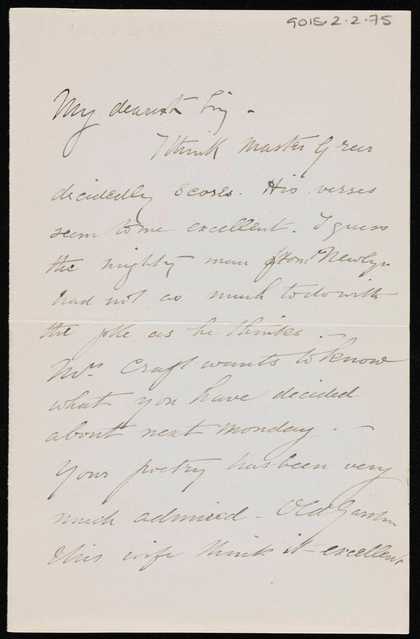 9015.2.2.75
My dearest
I think Master Green
decidedly scores. His verses
seem to me excellent. I guess
the mighty man from Newlyn
had not as much to do with
the joke as he thinks. -
Mrs Craft wants to know
what you have decided
about next Monday. -
Your poetry has been very
much admired - Old
& his wife think it excellent